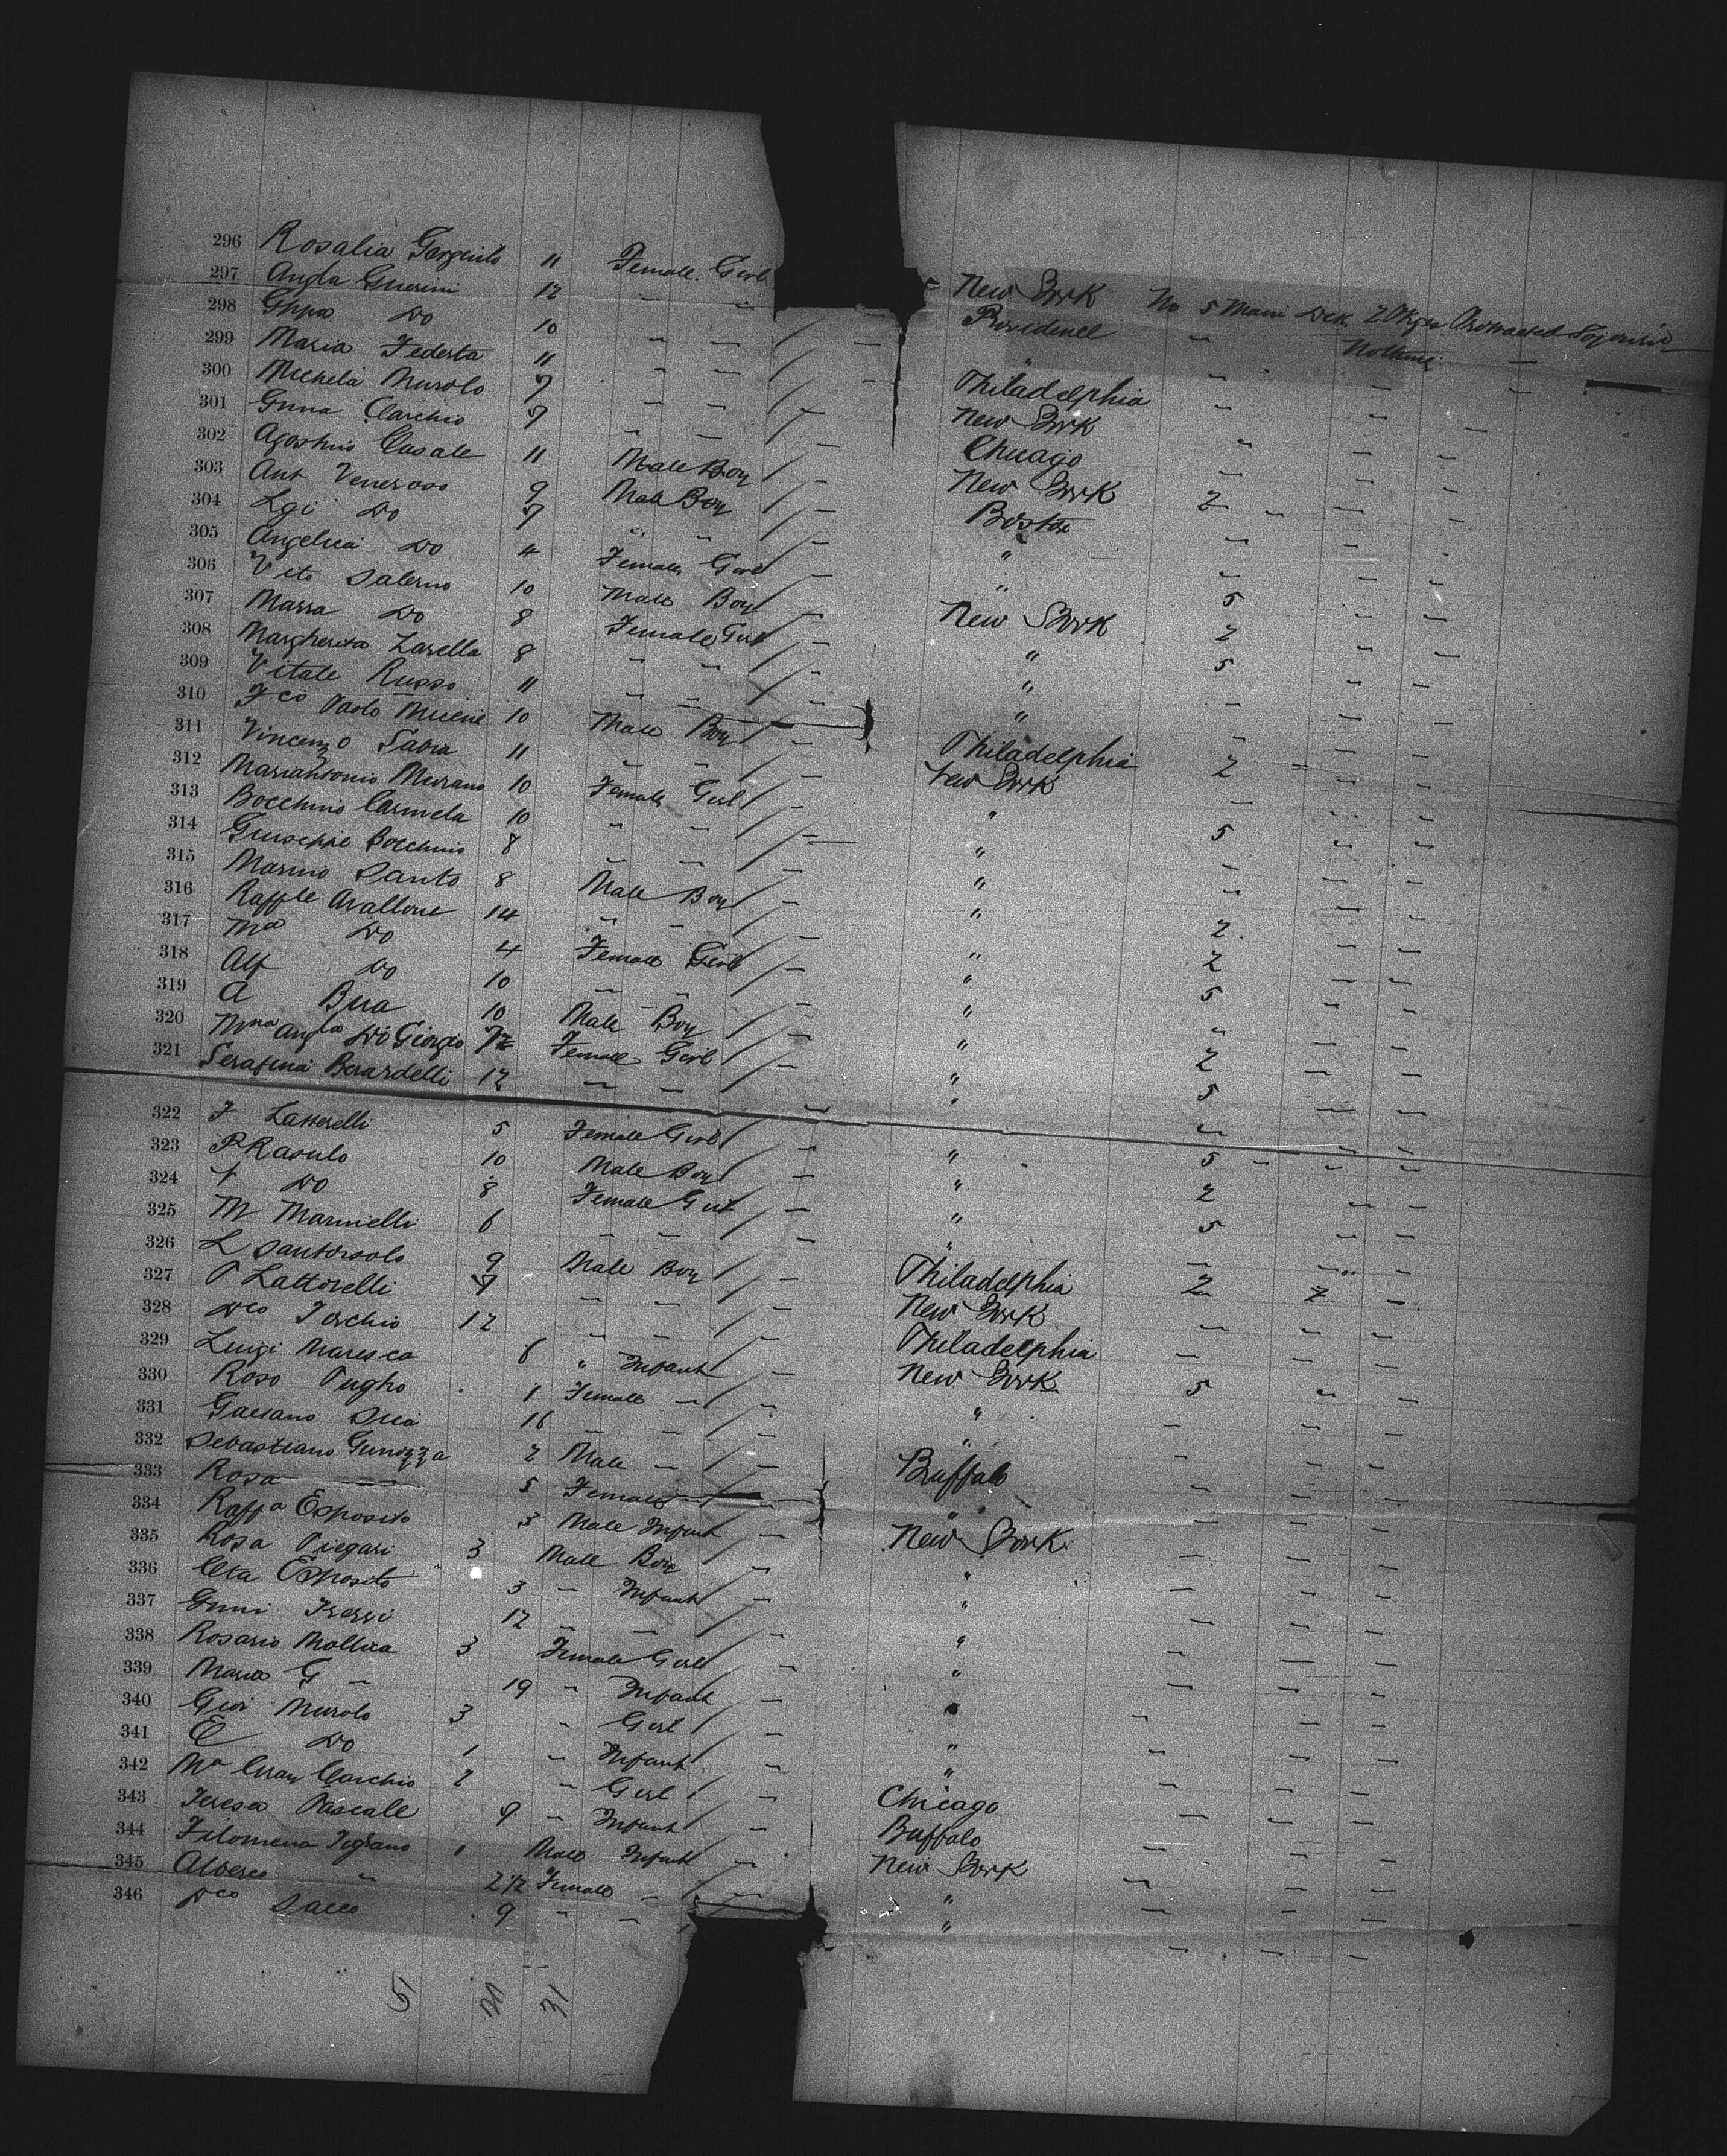 296 Rosalia Gargiulo 11 Female Girl New York No 5 Main Deck 20 Kgs Protracted Sojourn
297 Angla Guerini 12 " " Providence " Nothing
298 Gppa Do 10 " " "
299 Maria Federta 11 " " Philadelphia
300 Michela Murolo 7 " " New York
301 Gnna Carchio 7 " " Chicago
302 Agostino Casale 11 Male Boy New York 2
303 Ant Veneroso 9 Male Boy Boston
304 Lgi Do 7 " " "
305 Angelica Do 4 Female Girl " 5
306 Vito Salerno 10 Male Boy New York 2
307 Massa Do 8 Female Girl " 5
308 Margherita Zarella 8 " " "
309 Vitale Russo 11 " " "
310 Fco Paolo 10 Male Boy Philadelphia 2
311 Vincenzo Sabia 11 " " New York
312 Mariantonio Murano 10 Female Girl " 5
313 Bocchino Carmela 10 " " "
314 Giuseppe Bocchino 8 " " "
315 Marino Santo 8 Male Boy " 2
316 Raffle Avallone 14 " " " 2
317 Ma Do 4 Female Girl " 5
318 Alf Do 10 " " "
319 A Bua 10 Male Boy " 2
320 Mna Angla Di Giorgio Female Girl " 5
321 Serafina Berardelli 12 " "
322 F Lattorelli 5 Female Girl " 5
323 P Rasulo 10 Male Boy " 2
324 Do 8 Female Girl " 5
325 M Marinelli 6 " " "
326 L Santorsolo 9 Male Boy Philadelphia 2
327 P Lattorelli 7 " " New York
328 Dco Torchio 12 " " Philadelphia
329 Luigi Maresca 6 " Infant New York 5
330 Rosa 1 Female " "
331 Gaetano 16 " " "
332 Sebastiano 2 Male " Buffalo
333 Rosa " 5 Female " "
334 Raffa Esposito 3 Male Infant New York
335 Rosa Piegari 3 Male Boy "
336 Esposito 3 " Infant "
337 Gnni 12 " " "
338 Rosario Mollica 3 Female Girl "
339 Maria G " 19 " Infant "
340 Giov Murolo 3 " Girl "
341 E Do 1 " Infant "
342 Ma Carchio 2 " Girl Chicago
343 Teresa Pascale 9 " Infant Buffalo
344 Filomena 1 Male Infant New York
345 " 2 1/2 Female " "
346 Dco Sacco 9 " " "
51 20 31